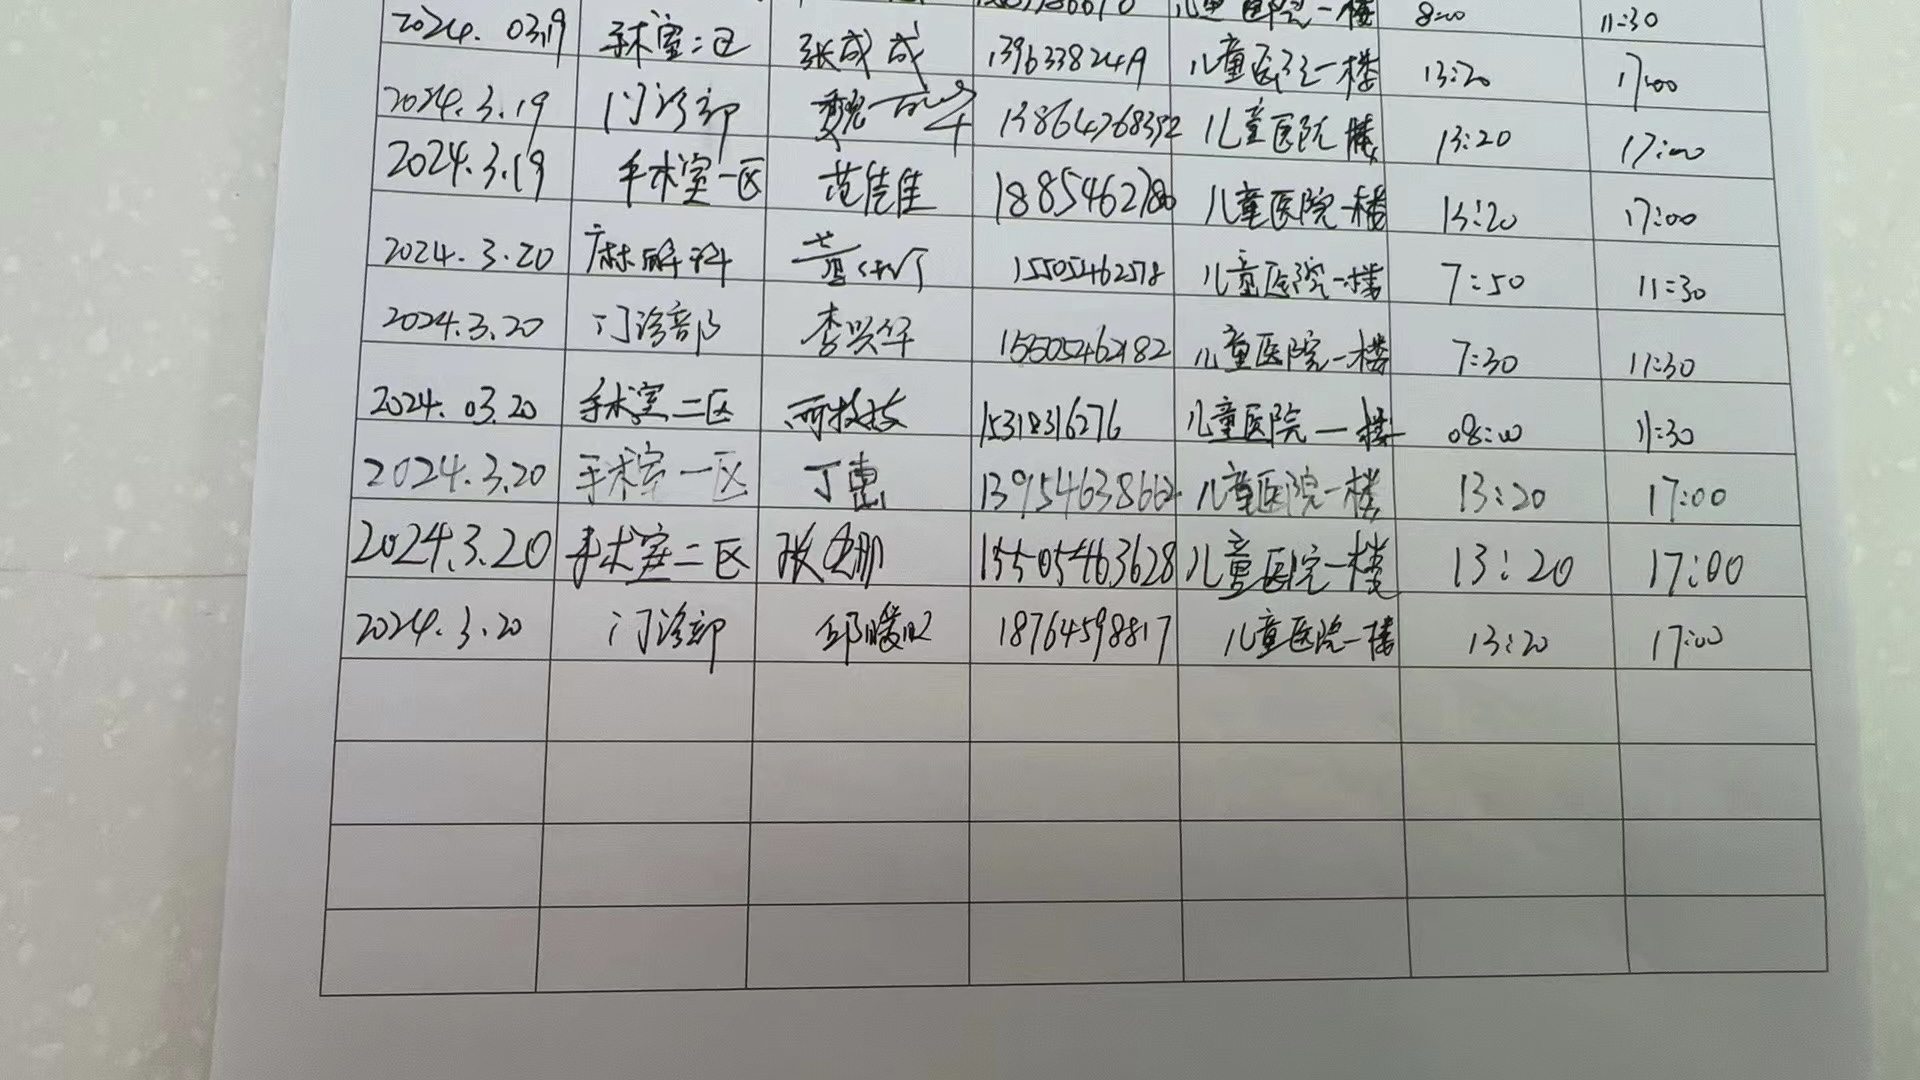 儿童医院一楼 8:00 11:30
2024.03.19 手术室二区 张成成 儿童医院一楼 13:20 17:00
2024.3.19 门诊部 魏 13864768392 儿童医院一楼 13:20 17:00
2024.3.19 手术室一区 范佳佳 儿童医院一楼 13:20 17:00
2024.3.20 麻醉科 15505462578 儿童医院一楼 7:50 11:30
2024.3.20 门诊部 李兴华 儿童医院一楼 7:30 11:30
2024.03.20 手术室二区 儿童医院一楼 08:00 11:30
2024.3.20 手术室一区 丁惠 13954638662 儿童医院一楼 13:20 17:00
2024.3.20 手术室二区 张 儿童医院一楼 13:20 17:00
2024.3.20 门诊部 邱 18764598817 儿童医院一楼 13:20 17:00